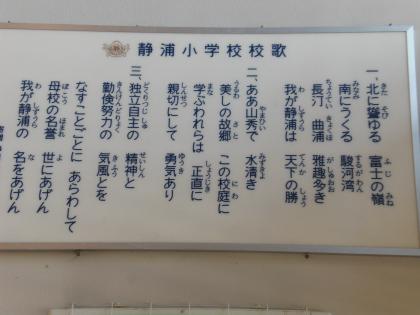 静浦小学校校歌
一、北に聳ゆる 富士の嶺
南にうくる 駿河湾
長汀 曲浦 雅趣多き
我が静浦は 天下の勝
二、ああ山秀で 水清き
美しの故郷 この校庭に
学ぶわれらは 正直に
親切にして 勇気あり
三、独立自主の 精神と
勤倹努力の 気風とを
なすことごとに あらわして
母校の名誉 世にあげん
我が静浦の 名をあげん